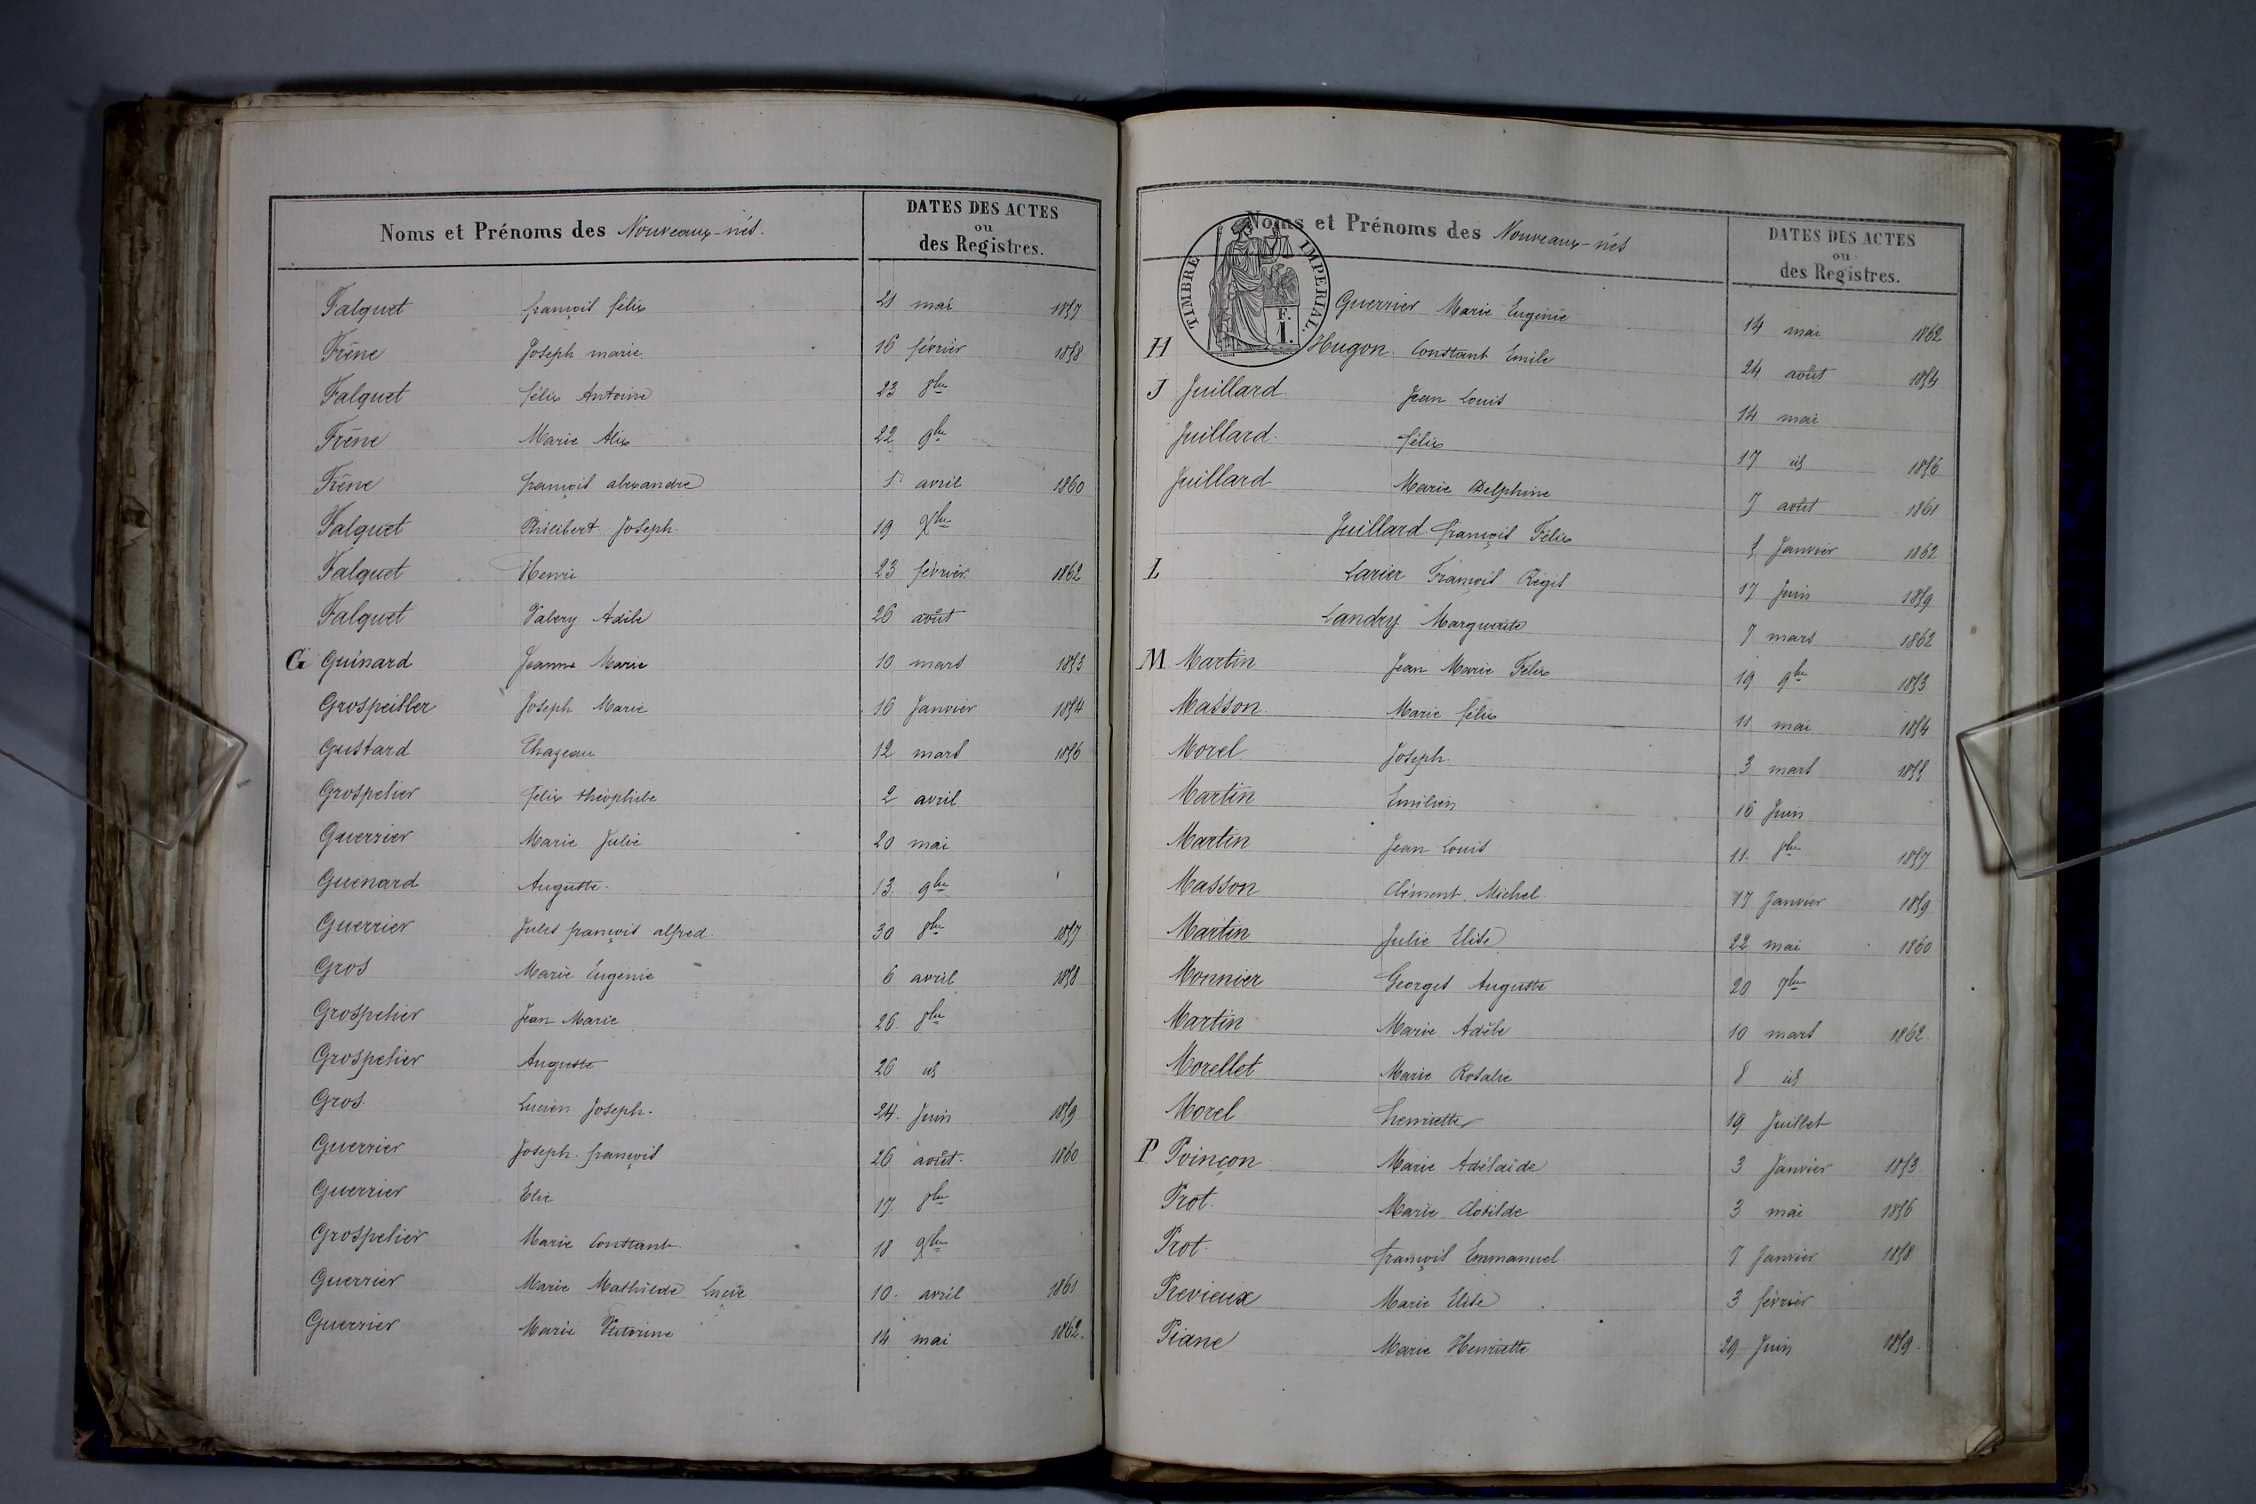 Noms et Prénoms des Nouveaux-nés.
DATES DES ACTES
ou
des Registres.
Falquet françois félix 21 mai 1857
Frène Joseph marie 16 février 1858
Falquet félix Antoine 23 8bre
Frène Marie Alix 22 9bre
Frène françois alexandre 1er avril 1860
Falquet Philibert Joseph 19 Xbre
Falquet Henri 23 février 1862
Falquet Valery Adèle 26 août
G Guinard Jeanne Marie 10 mars 1853
Grospeillier Joseph Marie 16 Janvier 1854
Gustard Chazeau 12 mars 1856
Grospelier félix théophile 2 avril
Guerrier Marie Julie 20 mai
Guenard Auguste. 13 9bre
Guerrier Jules françois alfred. 30 8bre 1857
Gros Marie Eugénie 6 avril 1858
Grospelier Jean Marie 26. 8bre
Grospelier Auguste 26 id
Gros Lucien Joseph. 24. Juin 1859
Guerrier Joseph françois 26 août. 1860
Guerrier Elie 17. 8bre
Grospelier Marie Constant 18 Xbre
Guerrier Marie Mathilde Lucie 10. avril 1861
Guerrier Marie Victorine 14 mai 1862.
Noms et Prénoms des Nouveaux-nés
DATES DES ACTES
ou
des Registres.
TIMBRE IMPERIAL.
F.
1.
Guerrier Marie Eugénie 14 mai 1862
H Hugon Constant Emile 24 août 1854
J Juillard Jean Louis 14 mai
Juillard. félix 17 id 1856
Juillard Marie Delphine 7 août 1861
Juillard françois Félix Janvier 1862
L Larier François Régis 17 Juin 1859
Landry Marguerite 7 mars 1862
M Martin Jean Marie Félix 19 9bre 1853
Masson Marie félix 11 mai 1854
Morel Joseph. 3 mars 1855
Martin Emilien 16 Juin
Martin Jean Louis 11. 8bre 1857
Masson Clément Michel 17 Janvier 1859
Martin Julie Elise 22 mai 1860
Monnier Georges Auguste 20 7bre
Martin Marie Adèle 10 mars 1862
Morellet Marie Rosalie 8 id
Morel henriette 19 Juillet
P Poinçon Marie Adélaïde 3 Janvier 1853
Prot. Marie Clotilde 3 mai 1856
Prot. françois Emmanuel 7 Janvier 1858
Previeux Marie Elise 3 février
Piane Marie Henriette 29 Juin 1859.